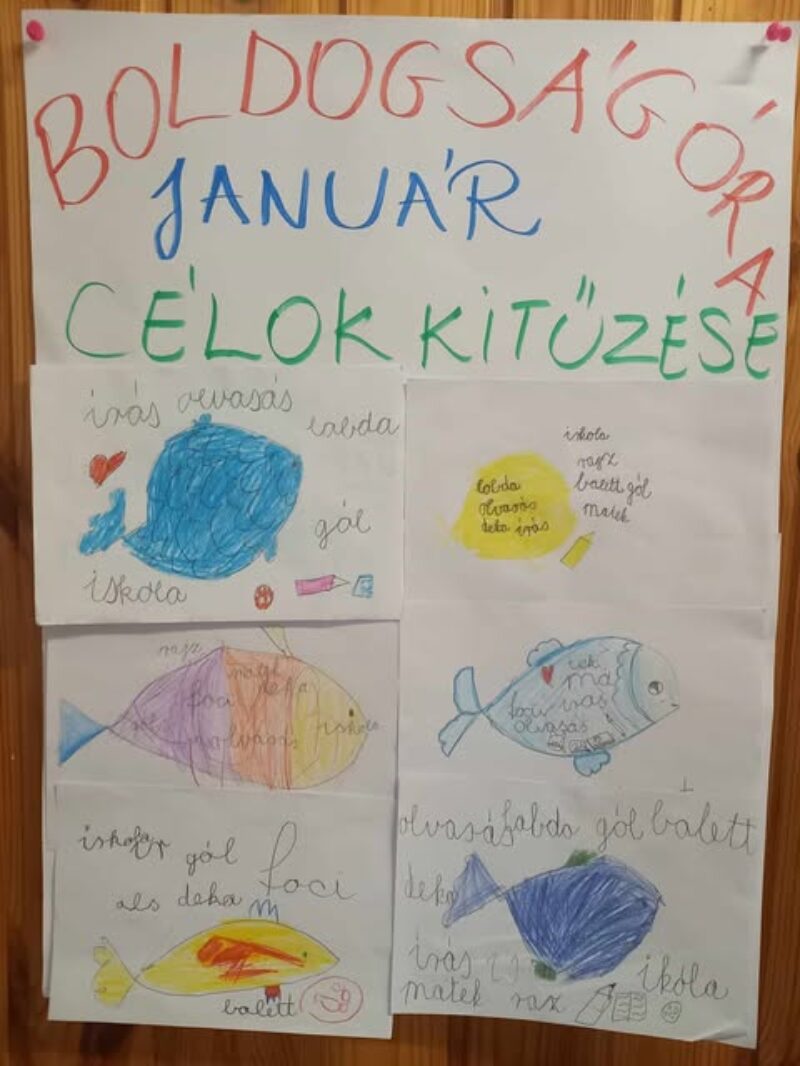 BOLDOGSÁGÓRA
JANUÁR
CÉLOK KITŰZÉSE
írás olvasás
labda
gól
iskola
iskola
rajz
balett gól
matek
labda
olvasás
deka írás
rajz
foci
iskola
olvasás
má
foci írás
olvasás
gól
foci
deka
balett
olvasás labda gól balett
deka
írás
ikóla
matek raz